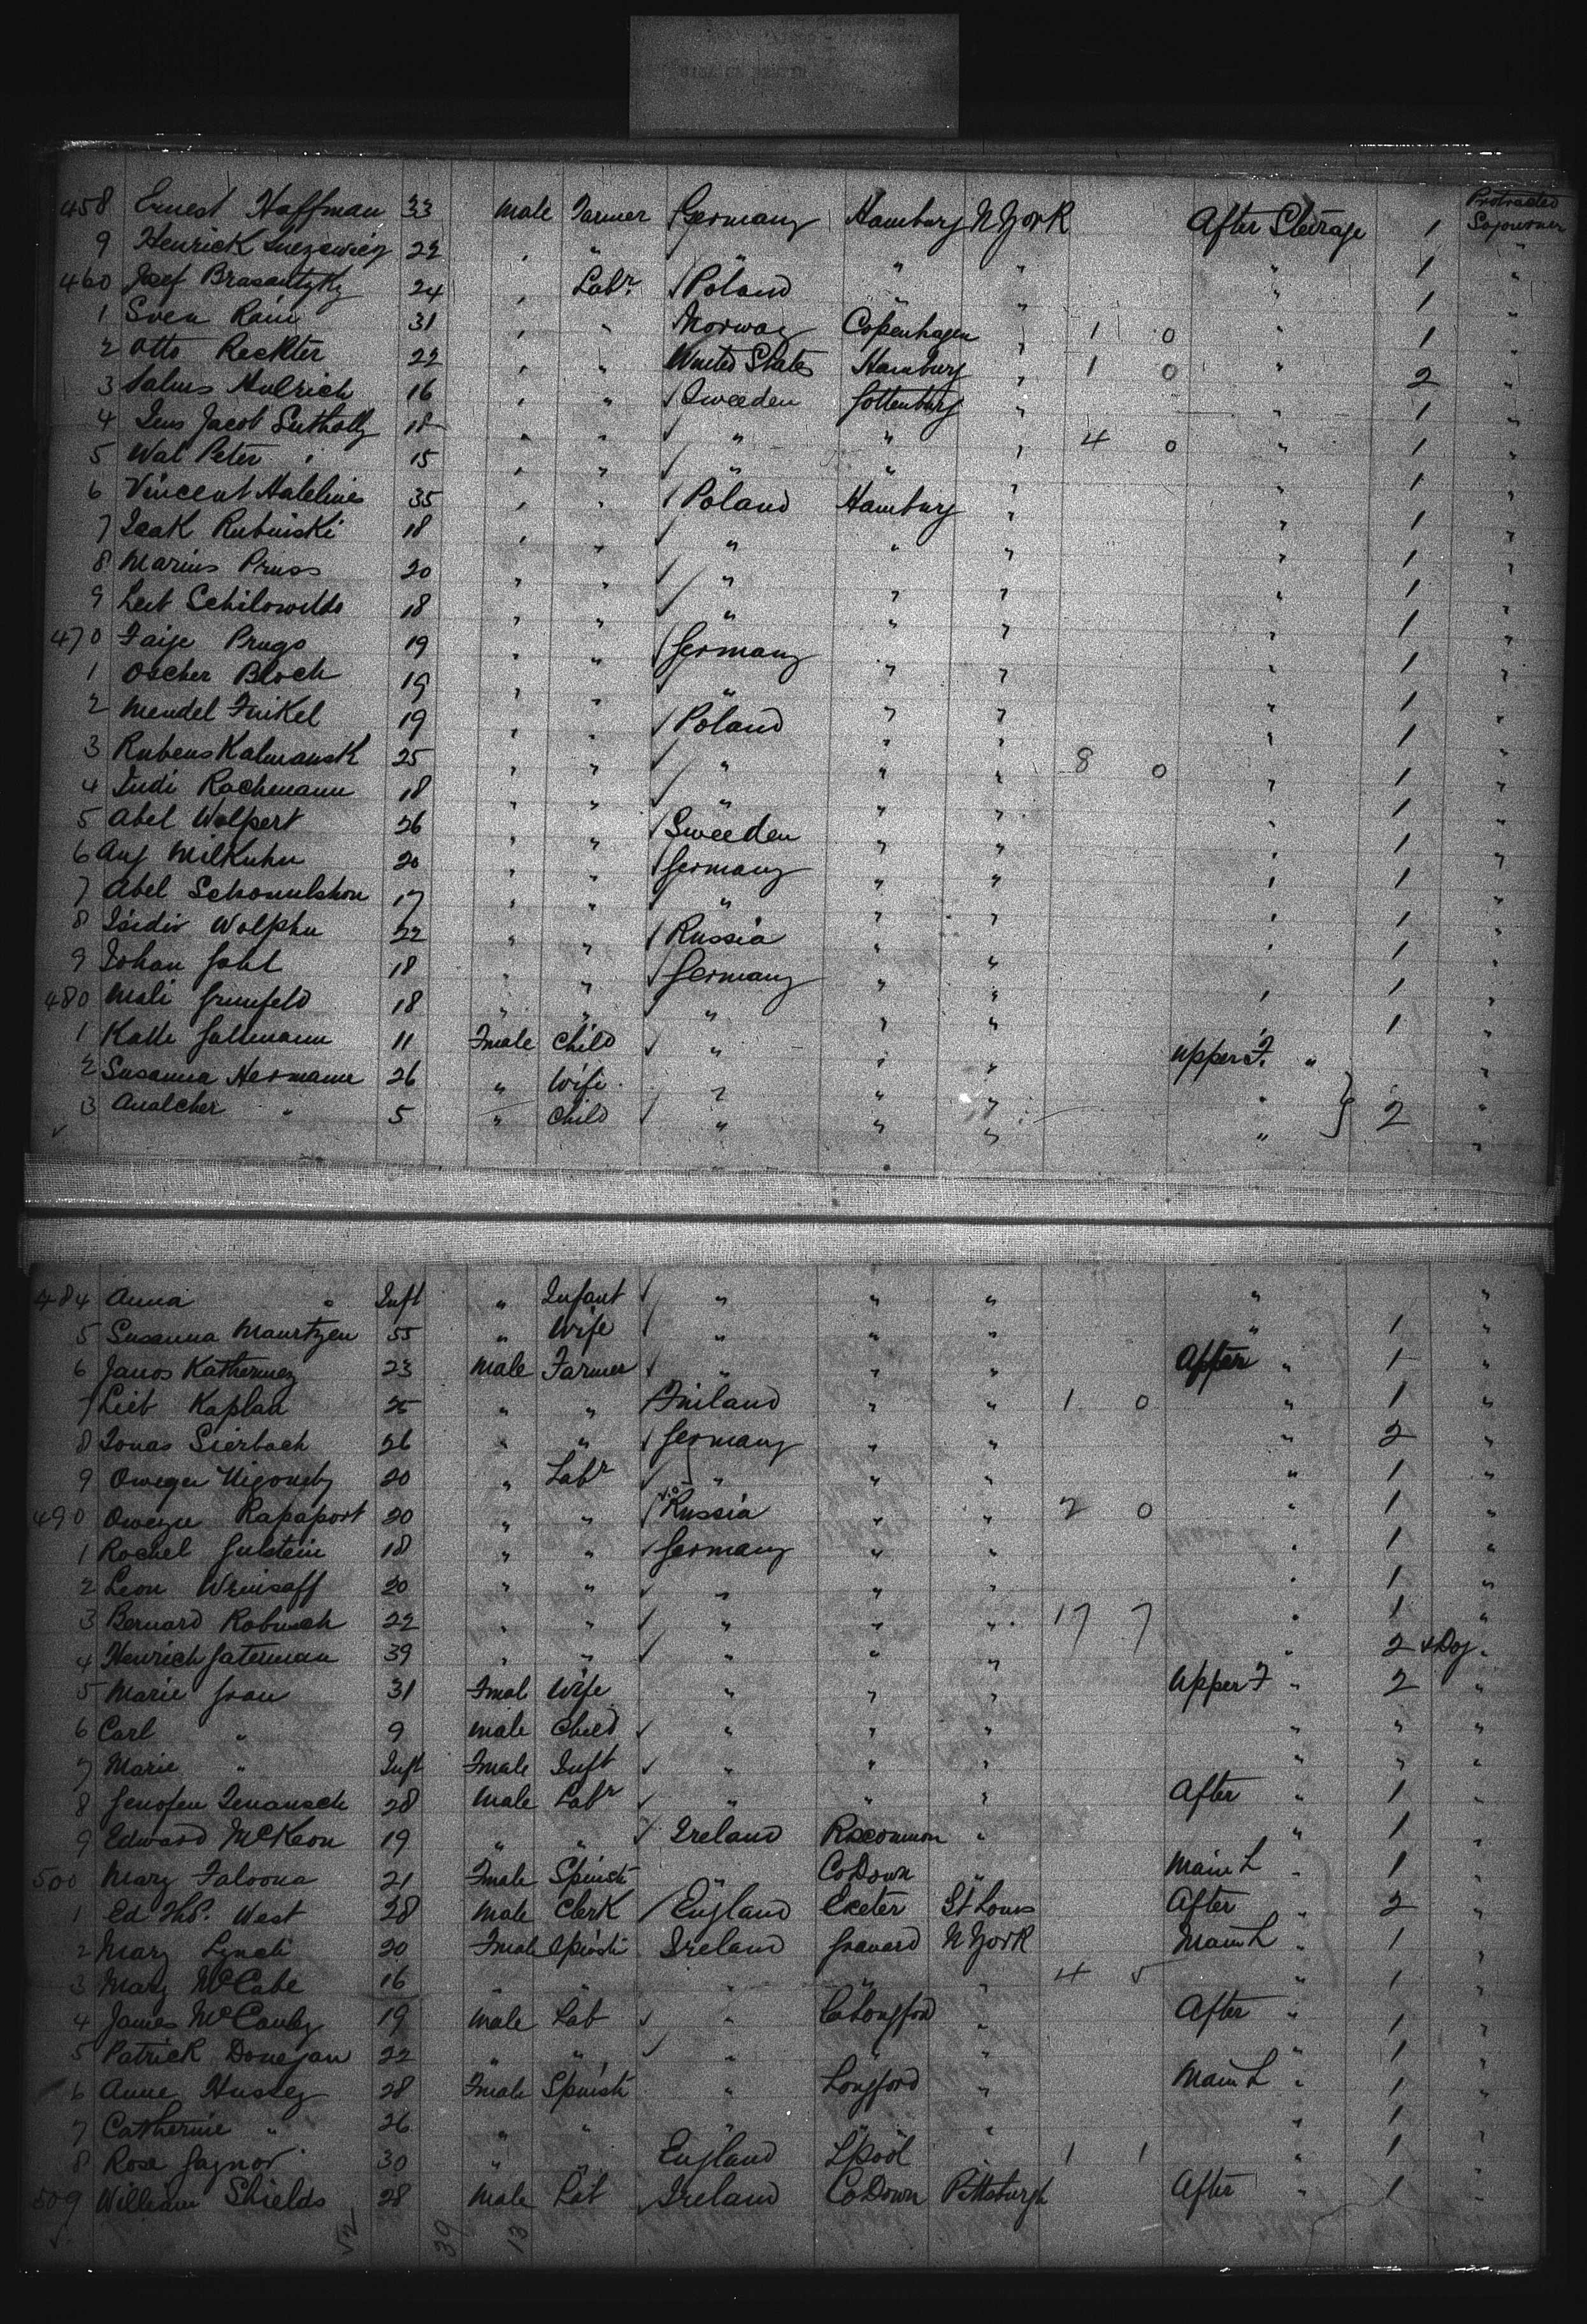 Protracted
458 Ernest Haffman 33 Male Farmer Germany Hamburg N York After Steerage 1 Sojourner
9 Henrick 22 " " " " " " 1 "
460 Josef 24 " Labr. Poland " " " 1 "
1 Sven Rain 31 " " Norway Copenhagen " 1 0 " 1 "
2 Otto Reckter 22 " " United States Hamburg " 1 0 " 2 "
3 16 " " Sweeden Gottenburg " " 1 "
4 Jens Jacob 18 " " " " " 4 0 " 1 "
5 Wal Peter " 15 " " " " " " 1 "
6 Vincent 35 " " Poland Hamburg " " 1 "
7 Isak Rubinski 18 " " " " " " 1 "
8 Marius Pruss 20 " " " " " " 1 "
9 Leib 18 " " " " " " 1 "
470 Faige Prugo 19 " " Germany " " " 1 "
1 Oscher Bloch 19 " " " " " " 1 "
2 Mendel Finkel 19 " " Poland " " " 1 "
3 Rubens Kalmansk 25 " " " " " 8 0 " 1 "
4 Judi Rachmann 18 " " " " " " 1 "
5 Abel Wolpert 26 " " Sweeden " " " 1 "
6 Aug Milkuhn 20 " " Germany " " " 1 "
7 Abel 17 " " " " " " 1 "
8 Isidir Wolphu 22 " " Russia " " " 1 "
9 Johan Gohl 18 " " Germany " " " 1 "
480 Mali Grunfeld 18 " " " " " " 1 "
1 Kalle Gallmann 11 Fmale Child " " " Upper F. " "
2 Susanna Hermann 26 " Wife " " " " 2 "
3 Analcher " 5 " Child " " " " "
484 Anna " Inft " Infant " " " " "
5 Susanna Maurtzen 55 " Wife " " " " 1 "
6 Janos 23 Male Farmer " " " After " 1 "
7 Lieb Kaplan 25 " " Finland " " 1 0 " 1 "
8 Jonas Sierbach 26 " " Germany " " " 2 "
9 20 " Labr " " " " 1 "
490 Owezu Rapaport 20 " " Russia " " 2 0 " 1 "
1 Rochel Gulstein 18 " " Germany " " " 1 "
2 Leon 20 " " " " " " 1 "
3 Bernard Robusch 22 " " " " " 17 7 " 1 "
4 Henrich Gaterman 39 " " " " " " 2 & Dog "
5 Marie Grau 31 Fmal Wife " " " Upper F " 2 "
6 Carl " 9 Male Child " " " " " "
7 Marie " Inft Fmale Inft " " " " " "
8 28 Male Labr " " " After " 1 "
9 Edward McKeon 19 " " Ireland Roscommon " " 1 "
500 Mary Faloona 21 Fmale Spinstr " Co Down " Main L " 1 "
1 Ed Thos. West 28 Male Clerk England Exeter St Louis After " 2 "
2 Mary Lynch 20 Fmale Spinstr Ireland Granard N York Main L " 1 "
3 Mary McCabe 16 " " " " " 4 5 " 1 "
4 James McCauley 19 Male Lab " Co Longford " After " 1 "
5 Patrick Donegan 22 " " " " " " 1 "
6 Anne Hussey 28 Fmale Spinstr " Longford " Main L " 1 "
7 Catherine " 26 " " " " " " 1 "
8 Rose Gaynor 30 " " England L'pool " 1 1 " 1 "
509 William Shields 28 Male Lab Ireland Co Down Pittsburgh After " 1 "
52 39 13